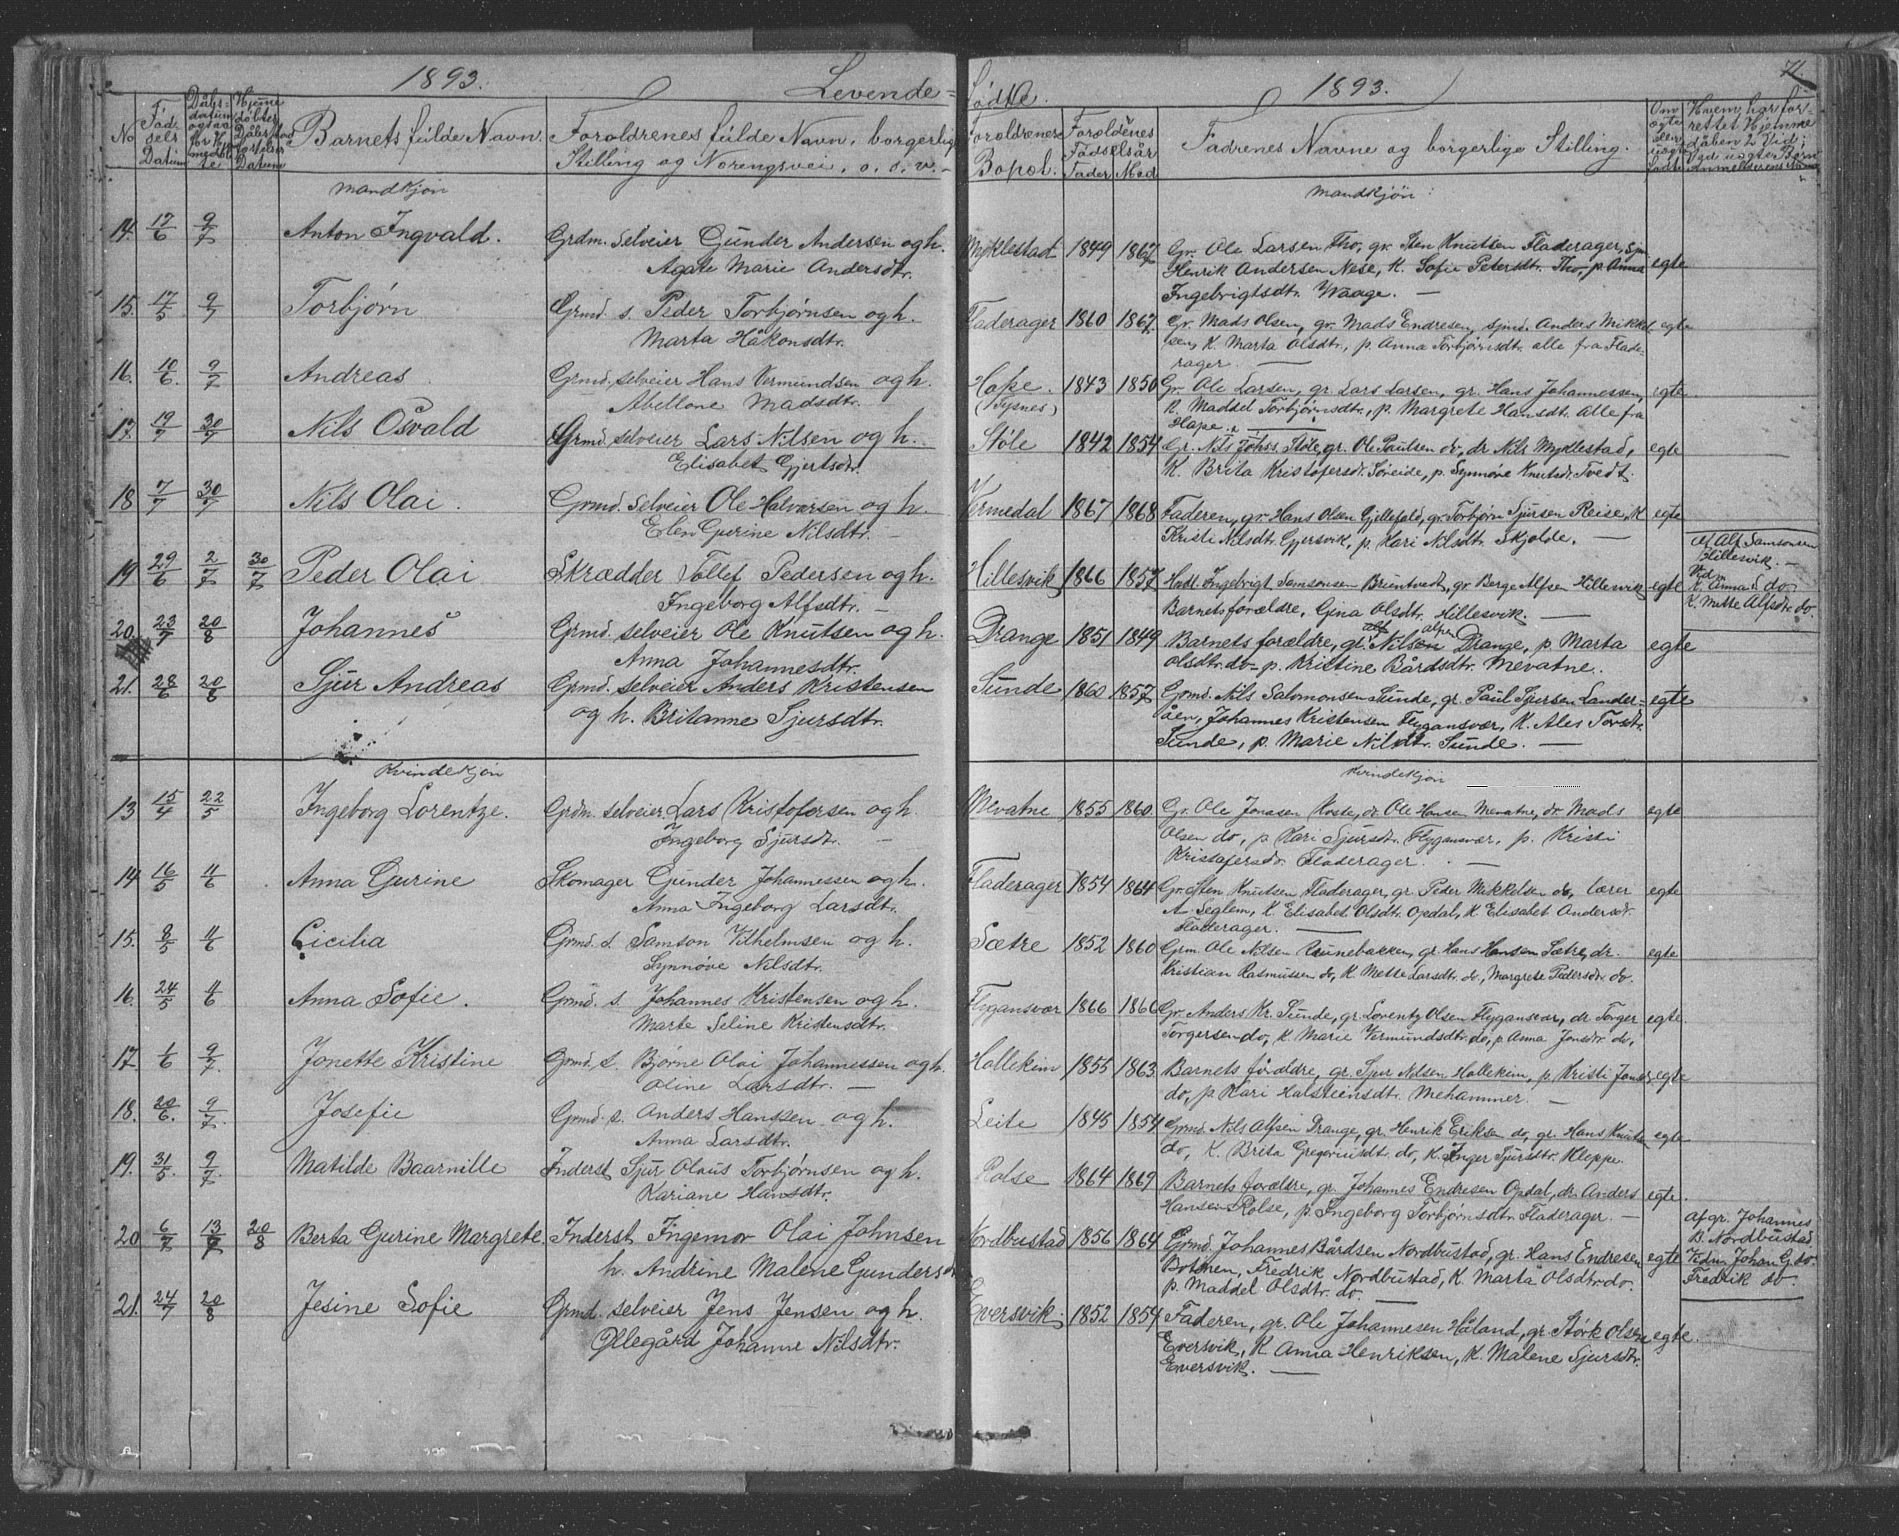 1893.
Levende=
No
Fød-
sels
Datum
Dåbs-
datum
Hjemme
døbtes
Datum
Barnets fulde Navn.
Forældrenes fulde Navn, borgerlig
Stilling og Næringsvei, o. s. v.
Mandkjøn
14. 17/6 9/7 Anton Ingvald. Grdm. selveier Gunder Andersen og h.
Agate Marie Andersdtr.
15. 17/5 9/7 Torbjørn Grmd. s. Peder Torbjørnsen og h.
Marta Håkonsdtr.
16. 10/6. 9/7 Andreas Grmd. selveier Hans Vermundsen og h.
Abellone Madsdtr.
17. 19/7 30/7 Nils Osvald Grmd. selveier Lars Nilsen og h.
Elisabet Gjertsdtr.
18. 7/7 30/7 Nils Olai. Grmd. selveier Ole Halvorsen og h.
Elen Gurine Nilsdtr.
19 29/6 2/7 30/7 Peder Olai Skrædder Tollef Pedersen og h.
Ingeborg Alfsdtr. —
20. 23/7 20/8 Johannes Grmd. selveier Ole Knutsen og h.
Anna Johannesdtr.
21. 28/6 20/8 Sjur Andreas Grmd. selveier Anders Kristensen
og h. Britanne Sjursdtr.
Kvindekjøn
13 15/4 22/5 Ingeborg Lorentze. Grdm. selveier Lars Kristofersen og h.
Ingeborg Sjursdtr. —
14 16/5 11/6 Anna Gurine Skomager Gunder Johannessen og h.
Anna Ingeborg Larsdtr.
15. 8/5 11/6 Cicilia Grmd. s. Samson Vilhelmsen og h.
Synnøve Nilsdtr.
16. 24/5 11/6 Anna Sofie. Grmd. s. Johannes Kristensen og h.
Marte Seline Kristensdtr.
17. 1/6 9/7. Jonette Kristine Grmd. s. Bjørne Olai Johannessen og h.
Oline Larsdtr. —
18. 20/6. 9/7. Josefie Grmd s. Anders Hanssen og h.
Anna Larsdtr.
19. 31/5. 9/7. Matilde Baarnille Inderst Sjur Olaus Torbjørnsen og h.
Kariane Hansdtr.
20 6/7 13/7 20/8 Berta Gurine Margrete. Inderst Ingemor Olai Johnsen
h. Andrine Malene Gundersd
21. 24/7 20/8 Jesine Sofie Grmd. selveier Jens Jensen og h.
Ollegård Johanne Nilsdtr.
Fødte.
1893.
71
Forældrenes
Bopæl.
Forældrenes
Fødselsår
Fader Mod
Fadrenes Navne og borgerlige Stilling.
Om
egte
eller
uegte
Fødte
Hvem har for-
rettet Hjemme
dåben & Vid;
Ved uegte Børn
Anmelderens Navn
Mandkjøn:
Myklestad 1849 1867 Gr. Ole Larsen Tho, gr. Sten Knutsen Fladerager,
Henrik Andersen Nese, K. Sofie Petersdtr. Tho, p. Anna egte
Ingebrigtsdtr. Waage. —
Fladerager 1860 1867 Gr. Mads Olsen, gr. Mads Endresen, Anders Mikkel egte
sen, K. Marta Olsdtr, p. Anna Torbjørnsdtr. alle fra Flade-
rager. —
Hope. 1843 1850 Gr. Ole Larsen, gr. Lars Larsen, gr. Hans Johannessen, egte
(Tysnes) K. Maddel Torbjørnsdtr, p. Margrete Hansdtr. Alle fra
Hope. —
Støle 1842 1854 Gr. Nils Johs. Støle, gr. Ole Paulsen do, dr Nils Myklestad, egte
K. Brita Kristofersdr. Søreide, p. Synnøve Knutsdr. Tvedt.
Vermedal 1867 1868 Faderen, gr. Hans Olsen Gjillefald, gr. Torbjørn Sjursen Reise, K egte
Kristi Nilsdtr. Gjersvik, p. Kari Nilsdtr. Skjolde. —
Af Alf Samsonsen
Hillesvik. —
Hillesvik 1866 1857 Hndl. Ingebrigt Samsonsen Bruntvedt, gr Berge Alfsen Hillesvik egte
Vidn
K. Anna S do
Barnets forældre, Gina Olsdtr. Hillesvik.
K. Mette Alfsdtr do.
Drange 1851 1849 Barnets forældre, gr. Nilsen Drange, p. Marta egte
Olsdtr. do - p. Kristine Bårdsdtr. Mevatne.
Sunde 1860 1857 Grmd. Nils Salomonsen Sunde, gr. Paul Sjursen Lander- egte
åen, Johannes Kristensen Flygansvær, K. Ales Torsdtr.
Sunde, p. Marie Nilsdtr. Sunde. —
Kvindekjøn
Mevatne 1855 1860 Gr. Ole Jonasen Koste, dr Ole Hansen Mevatne, dr. Mads egte
Olsen do, p Kari Sjursdtr. Flygansvær, p. Kristi
Kristofersdr. Fladerager. —
Fladerager 1854 1864 Gr. Sten Knutsen Fladerager, gr. Peder Mikkelsen do, Lærer egte
A. Seglem, K. Elisabet Olsdtr. Opdal, K. Elisabet Andersdr.
Fladerager. —
Sætre 1852 1860 Grm Ole Nilsen Raunebakken, gr. Hans Hansen Sætre, dr. egte
Kristian Rasmussen do, K. Mette Larsdtr. do, Margrete Pedersdr do.
Flygansvær 1866 1866 Gr. Anders Kr. Sunde, gr. Lorentz Olsen Flygansvær, dr Torger egte.
Torgersen do, K. Marie Vermundsdtr. do, p. Anna Jonsdr do.
Hollekim 1855 1863 Barnets forældre, gr. Sjur Nilsen Hollekim, p. Kristi Jonsdr. egte
do, p Kari Halsteinsdtr. Mehammer. —
Leite 1845 1854 Grmd. Nils Alfsen Drange, gr. Henrik Eriksen do, gr. Hans Knuts egte
do, K. Brita Gregoriusdt do, K. Inger Sjursdtr. Kleppe.
Rolse 1864 1869 Barnets forældre, gr. Johannes Endresen Opdal, dr. Anders egte.
Hansen Rolse, p. Ingeborg Torbjørnsdtr. Fladerager. —
Nordbustad 1856 1864 Grmd. Johannes Bårdsen Nordbustad, gr. Hans Endresen egte
Botnen, Fredrik Nordbustad, K. Marta Olsdtr do.
p. Maddel Olsdtr. do. —
Af gr. Johannes
B. Nordbustad
Vidn Johan G. do.
Fredrik do
Eversvik. 1852 1854 Faderen, gr. Ole Johannesen Håland, gr. Størk Olsen egte.
Eversvik, K. Anna Henriksen, K. Malene Sjursdtr.
Eversvik. —